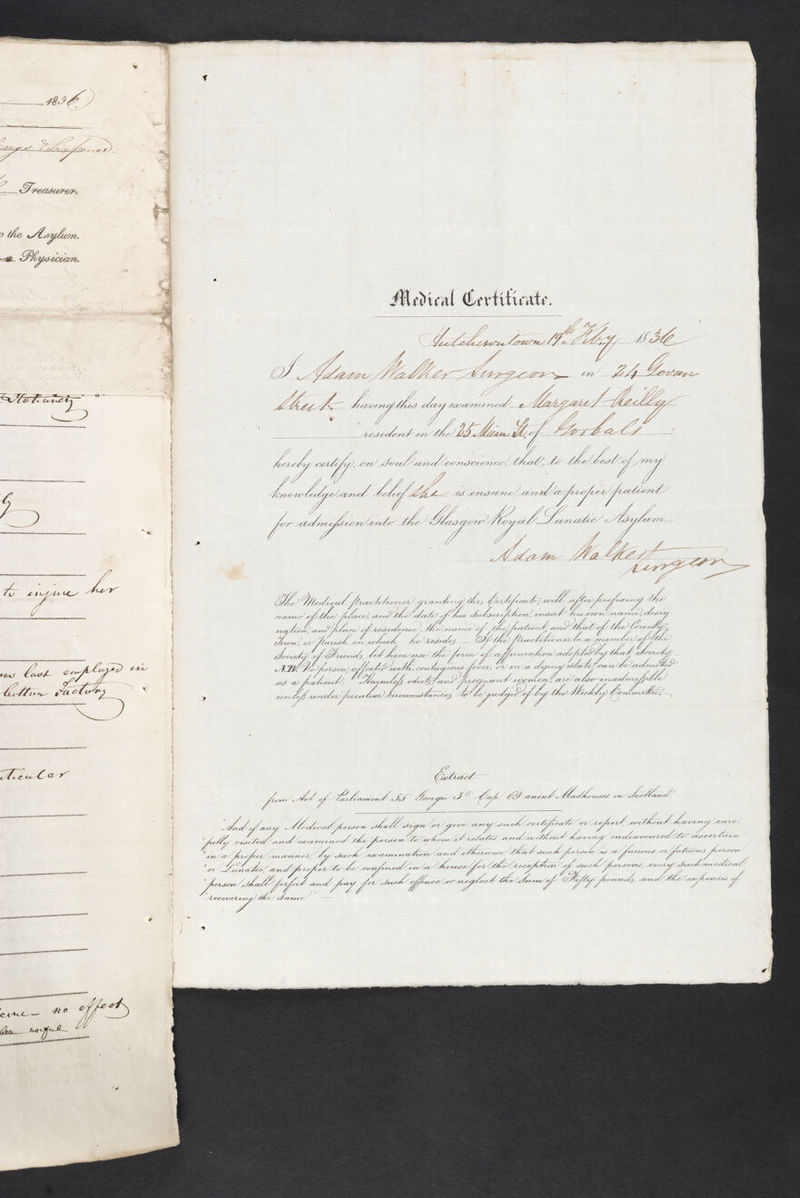 1836
Treasurer.
the Asylum.
Physician.
to injure her
last employed in
Cotton Factory
no effect
useful
Medical Certificate.
Hutchesontown 19th Feby 1836
I Adam Walker Surgeon in 24 Govan
Street having this day examined Margaret Reilly
resident in the 25 Main St. of Gorbals
hereby certify, on soul and conscience, that, to the best of my
knowledge and belief she is insane and a proper patient
for admission into the Glasgow Royal Lunatic Asylum
Adam Walker
Surgeon
The Medical Practitioner granting this Certificate, will, after prefixing the
name of the place, and the date of his subscription, insert his own name, desig
nation, and place of residence, the name of the patient, and that of the County,
Town, or Parish in which he resides. — If the Practitioner be a member of the
Society of Friends, let him use the form of affirmation adopted by that Society.
N.B. No person affected with contagious fever, or in a dying state, can be admitted
as a patient. Harmless idiots, and pregnant women, are also inadmissible
unless under peculiar circumstances to be judged of by the Weekly Committee.
Extract
from Act of Parliament 55 Georgii 3d Cap 69 anent Madhouses in Scotland
"And if any Medical person shall sign or give any such certificate or report without having care-
"fully visited and examined the person to whom it relates and without having endeavoured to ascertain
"in a proper manner by such examination and otherwise that such person is a furious or fatuous person
"or Lunatic, and proper to be confined in a house for the reception of such persons, every such medical
"person shall forfeit and pay for such offence or neglect the sum of Fifty pounds, and the expenses of
"recovering the same"